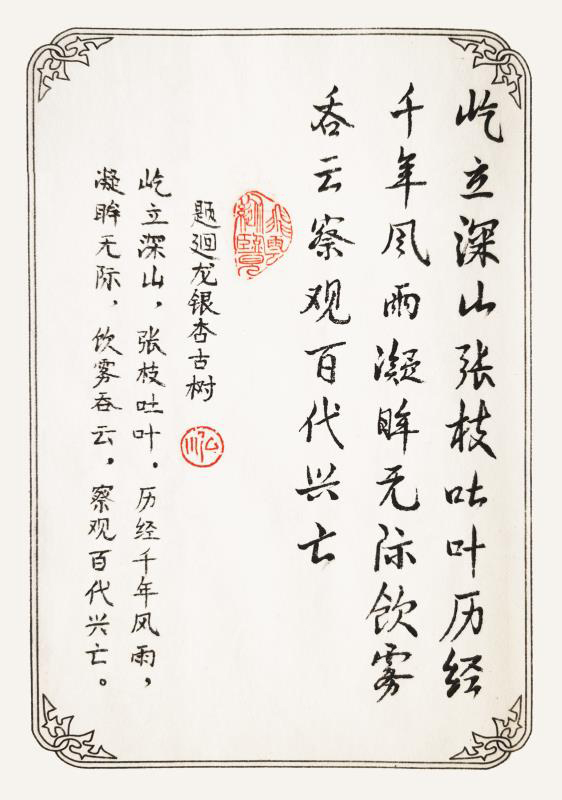 屹立深山张枝吐叶历经
千年风雨凝眸无际饮雾
吞云察观百代兴亡
题迴龙银杏古树
泓
屹立深山，张枝吐叶。历经千年风雨，
凝眸无际，饮雾吞云，察观百代兴亡。